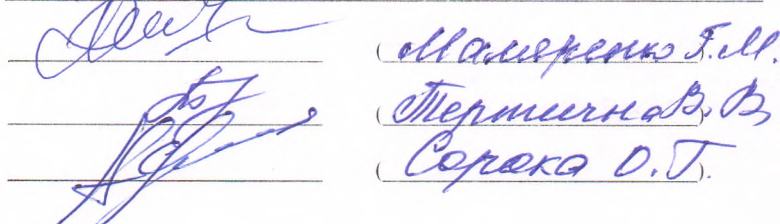 (Маляренко Г.М.
(Тертична В.В.)
(Сорока О.Г.).